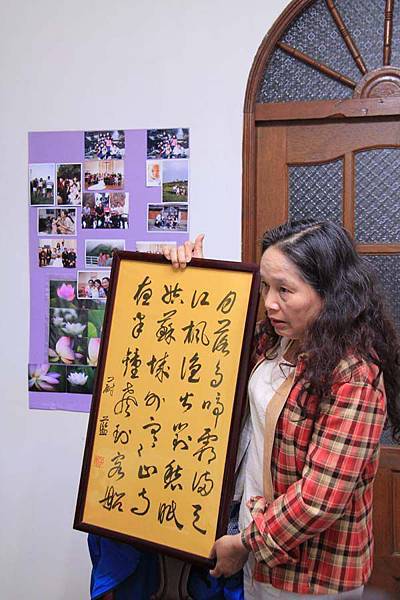 月落烏啼霜滿天
江楓漁火對愁眠
姑蘇城外寒山寺
夜半鐘聲到客船
蔚藍